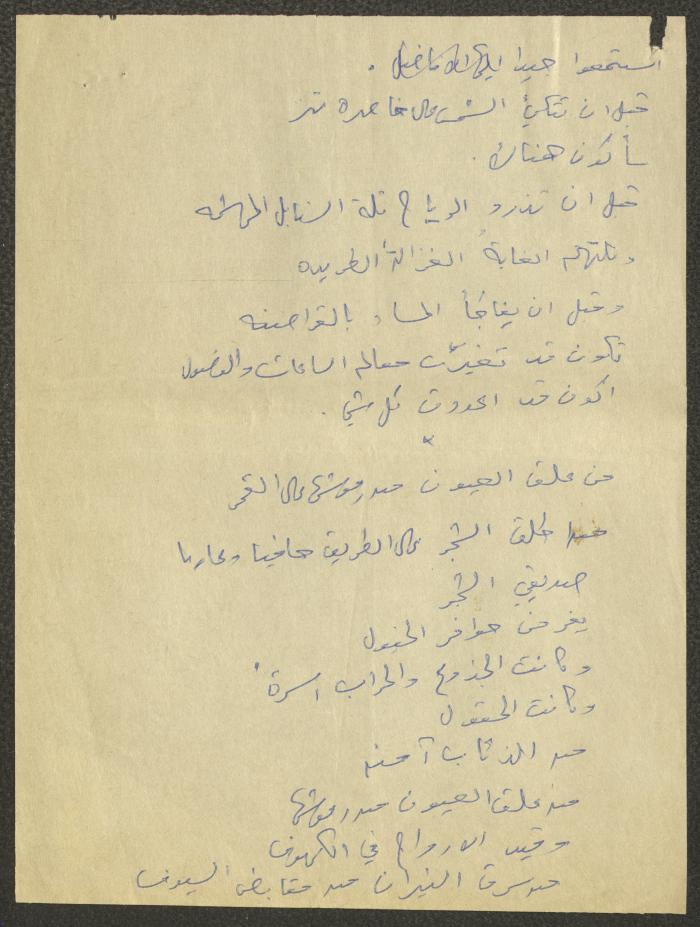 استمعوا جيدا ايها الافاضل .
قبل ان تتكئ الشمس على خاصرة
سأكون هناك .
قبل ان تذرو الرياح تلة السنابل المهشمه
وتلتهم الغابةُ الغزالة الطريده
وقبل ان يفاجأ المساء بالقراصنه
تكون قد تغيّرت معالم الساعات والفصول
اكون قد احدودق كل شي .
×
من علق العيون من رموشها على القمر
من اطلق الشجر على الطريق حافيا وعاريا
صديقي الشجر
يفر من حوافر الخيول
وكانت الجذوع والحراب اسرة
وكانت الحقول
من الذئاب آمنه
من علق العيون من رموشها
وقيد الارواح في الكهوف
من سرق النيران من مقابض السيوف